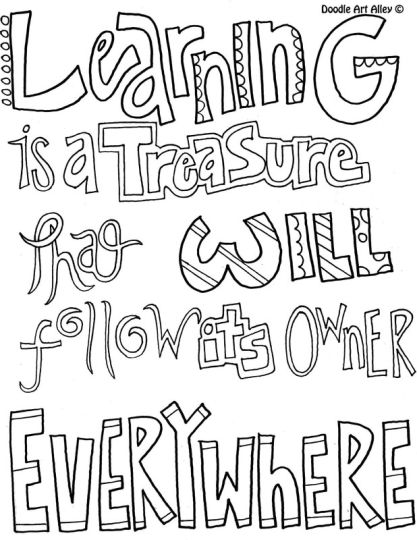 Doodle Art Alley ©
LearninG
is a Treasure
that WiLL
follow it's OwNER
EVERYWhERE